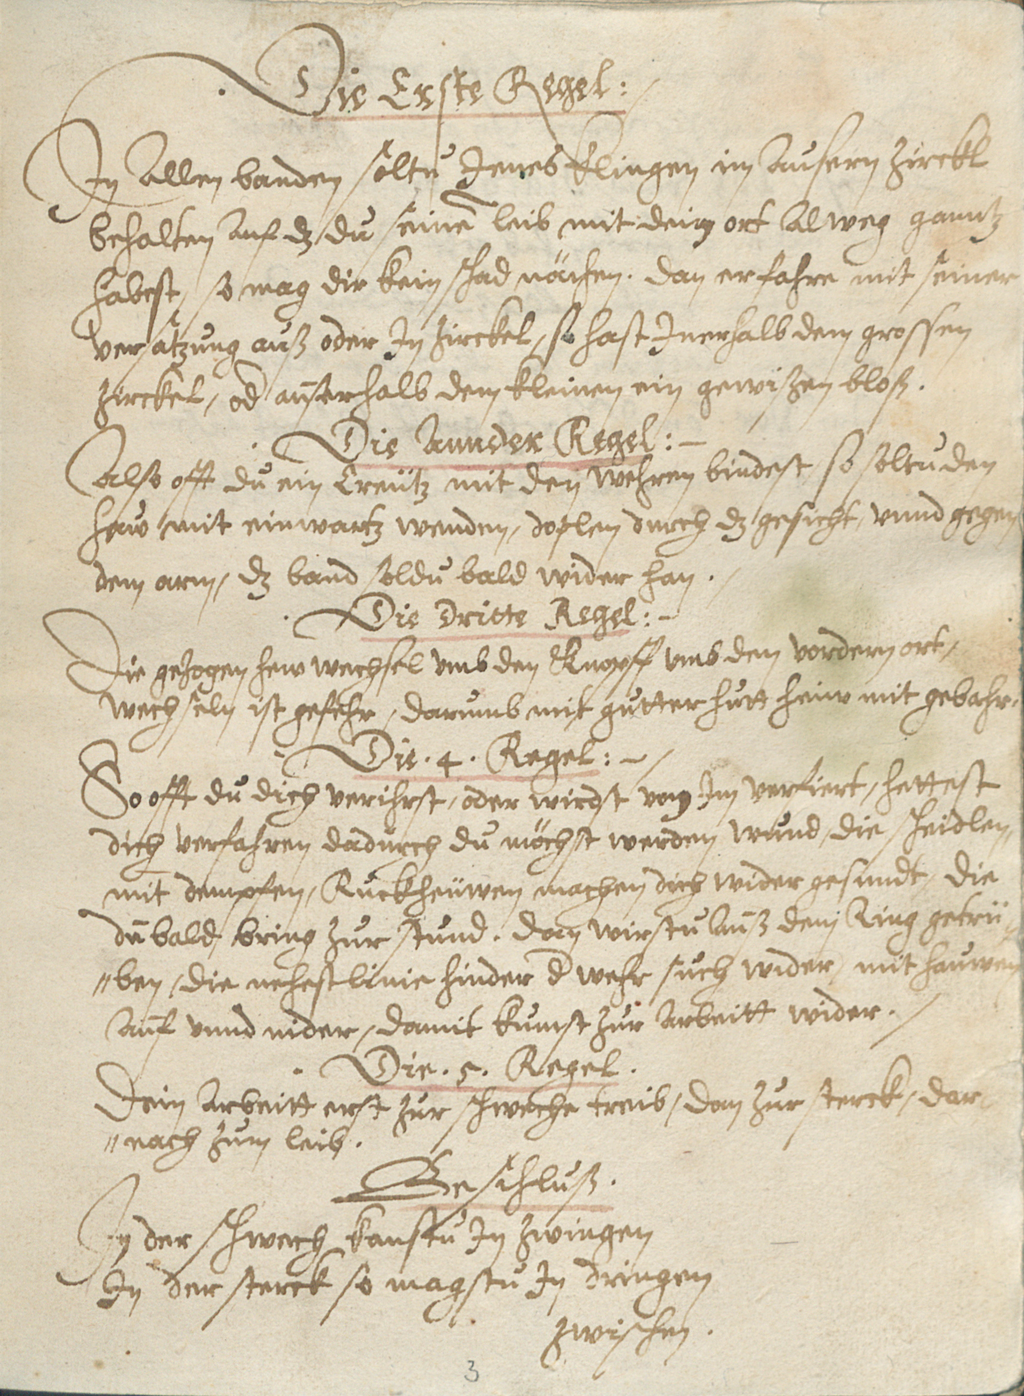 Die Erste Regel:
In Allen banden soltu Jenes Klingen im Ausern Zirckl
behalten Auf dz du seinē leib mit deim ort Alweg ganntz
habest, so mag dir kein schad nähen. dan er fahre mit seiner
versatzung auß oder In Zirckel, so hast Inerhalb dem grossen
Zirckel, od ausserhalb dem kleinen ein gewißen bloß.
Die Annder Regel:
Also offt du ein Creütz mit den wehren bindest so soltu den
hew mit einwartz wenden, doplen durch dz gesicht, vnnd gegen
dem arm, dz band soldu bald wider han.
Die dritte Regel:
Die gezogen hew wechsel vmb den Knopff vmb den vordern ort,
wechseln ist gefehr, darumb mit gutter hutt heiw mit gebahr.
Die .4. Regel:
So offt du dich verihrst, oder wirdst von Im verfiert, hettest
dich verfahren dadurch du möchst werden wund, die scheidlen,
mit dempfen, Ruckheüwen machen dich wider gesundt, Die
du bald bring zur stund. dan wirstu Auß dem Ring getrü-
"ben, die nehest linie hinder d wehr such wider, mit hauwen
Auf vnnd nider, damit kumst zur Arbeitt wider.
Die .5. Regel.
Dein Arbeitt erst zur schweche treib, dan zur sterck, dar
"nach zum leib.
Beschluß.
In der schwech kanstu In zwingen
In der sterck so magstu In dringen
zwischen.
3